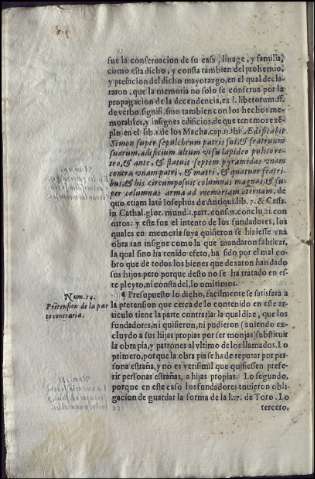 fue la conseruacion de su casa, linage, y familia,
como esta dicho, y consta tambien del prohemio,
y prefacion del dicho mayorazgo, en el qual decla-
raron, que la memoria no solo se conserua por la
propagacion de la decendencia, ex l. libertorum. ff.
de verbo. signifi. sino tambien con los hechos me-
morables, y insignes edificios, de que tenemos exe-
plo en el lib. 1. de los Macha. cap. 13. ibi, Edificabit
Simon super sepulchrum patris sui, & fratrum
suorum ædificium altum visu lapide polito re-
tro, & ante, & statuit septem pyramidas vnam
contra vnam patri, & matri, & quatuor fratri-
bus, & his circumposuit columnas magnas, & su-
per columnas arma ad memoriam æternam. de
quo etiam late Iosephus de Antiqui. lib. & Cassa-
in Cathal. glor. mundi, part. confi. concluni, en con
otros: y este fue el intento de los fundadores, los
quales en memoria suya quisieron se hiziesse vna
obra tan insigne como la que mandaron fabricar,
la qual sino ha tenido efeto, ha sido por el mal co-
bro que de todos los bienes que dexaron han dado
sus hijos pero porque desto no se ha tratado en es-
te pleyto, ni consta del, lo omitimos.
¶ Presupuesto lo dicho, facilmente se satisfara a
la pretension que cerca de lo contenido en este ar-
ticulo tiene la parte contraria: la qual dize, que los
fundadores, ni quisieron, ni pudieron (siendo exc-
luydo a sus hijas propias por ser monjas) substituir
la obra pia, y patrones al vltimo de los llamados. Lo
primero, porque la obra pia se ha de reputar por per-
sona estraña, y no es verisimil que quisiessen prefe-
rir personas estrañas, a hijas propias. Lo segundo,
porque en este caso los fundadores tuuieron obli-
gacion de guardar la forma de la ley. de Toro. Lo
tercero,
Num. 14.
Pretension de la par
te contraria.